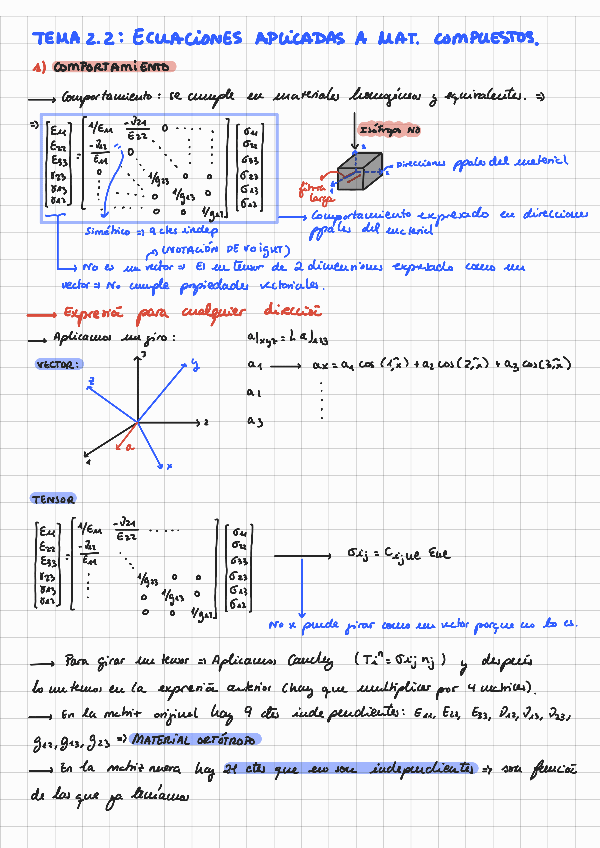 TEMA 2.2: ECUACIONES APLICADAS A MAT. COMPUESTOS.
1) COMPORTAMIENTO
→ Comportamiento: se cumple en materiales homogéneos y equivalentes. ⇒
⇒ [ε11 ε22 ε33 γ23 γ13 γ12] = [1/E11 -ν21/E22 0 ... -ν12/E11 ... 0 1/g23 0 0 0 1/g13 0 0 0 1/g12] [σ11 σ22 σ33 σ23 σ13 σ12]
Direcciones ppales del material
fibra
larga
Simétrico ⇒ 9 ctes indep
→ Comportamiento expresado en direcciones
ppales del material
(NOTACIÓN DE VOIGHT)
→ No es un vector ⇒ Es un tensor de 2 dimensiones expresado como un
vector ⇒ No cumple propiedades vectoriales.
→ Expresión para cualquier dirección
→ Aplicamos un giro: a|xyz = L a|123
VECTOR:
3
y
z
a1 → ax = a1 cos (1,x) + a2 cos (2,x) + a3 cos (3,x)
a2
2
a3
a
1
x
TENSOR
[ε11 ε22 ε33 γ23 γ13 γ12] = [1/E11 -ν21/E22 ..... -ν12/E11 ... 1/g23 0 0 0 1/g13 0 0 0 1/g12] [σ11 σ22 σ33 σ23 σ13 σ12] → σij = Cijkl εkl
No se puede girar como un vector porque no lo es.
→ Para girar un tensor ⇒ Aplicamos Cauchy (Ti^n = σij nj) y después
lo metemos en la expresión anterior (hay que multiplicar por 4 matrices).
→ En la matriz original hay 9 ctes independientes: E11, E22, E33, ν12, ν13, ν23,
g12, g13, g23 ⇒ MATERIAL ORTÓTROPO
→ En la matriz nueva hay 21 ctes que no son independientes ⇒ son función
de las que ya teníamos